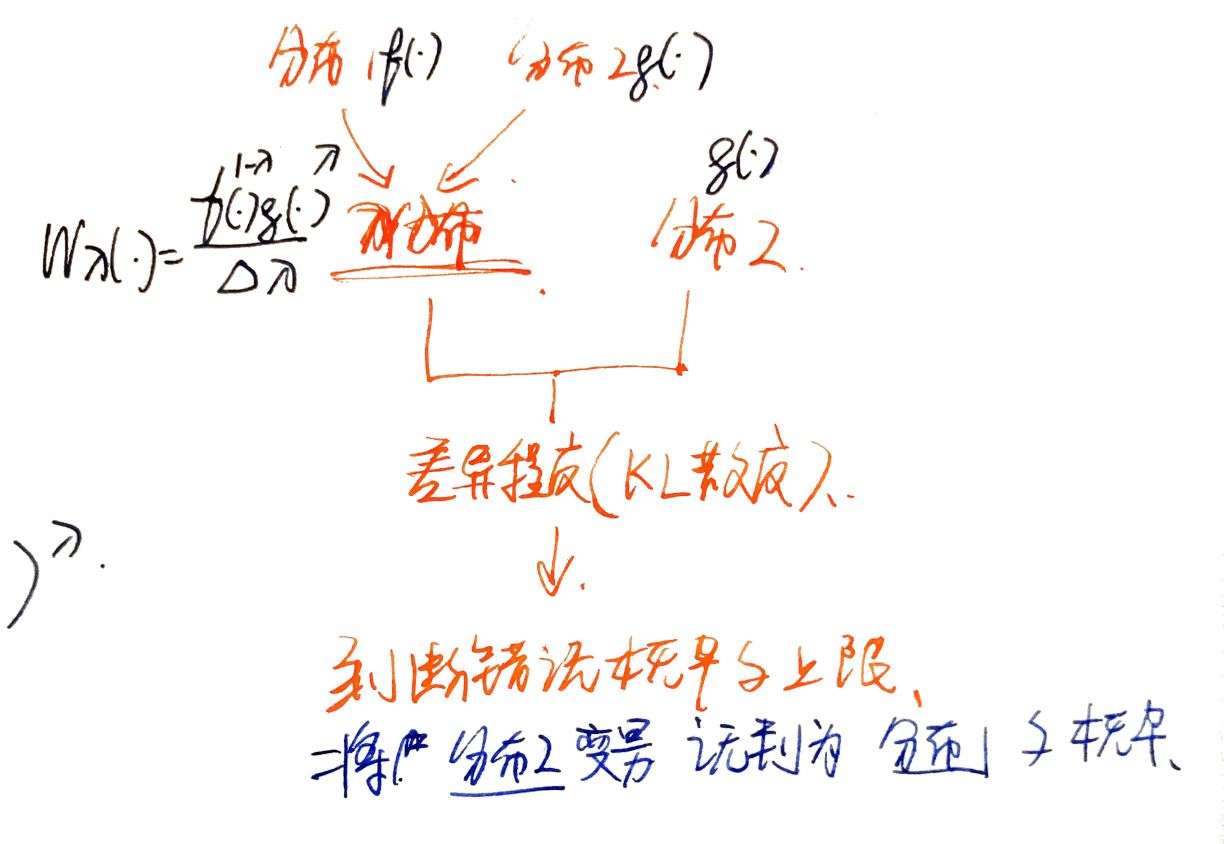 分布1f(·) 分布2g(·)
g(·)
Wλ(·)=f(·)^{1-λ}g(·)^{λ}/Δλ 分布 分布2.
差异程度(KL散度).
)^{λ}.
判断错误概率的上限、
=将 分布2变异 误判为 分布1 的概率、